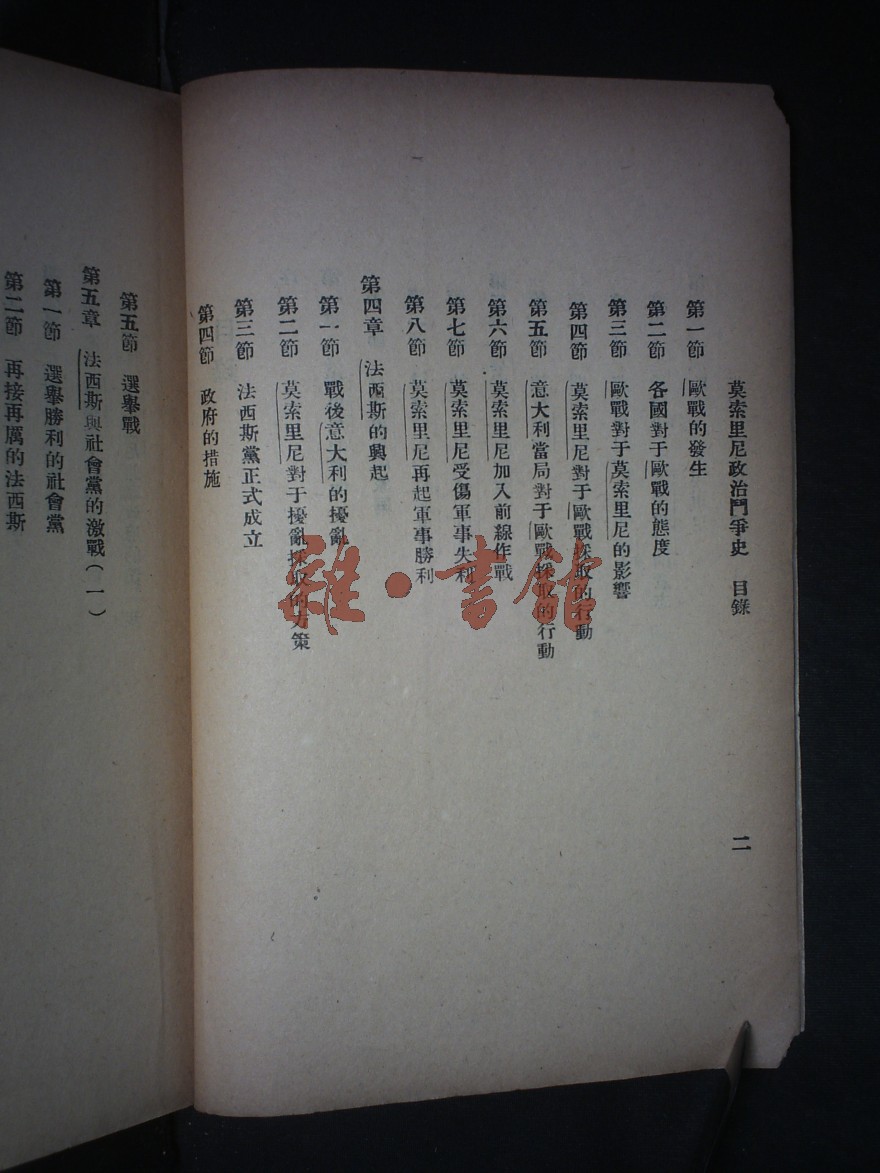 莫索里尼政治鬥爭史　目錄
二
第一節　歐戰的發生
第二節　各國對于歐戰的態度
第三節　歐戰對于莫索里尼的影響
第四節　莫索里尼對于歐戰採取的行動
第五節　意大利當局對于歐戰採取的行動
第六節　莫索里尼加入前線作戰
第七節　莫索里尼受傷軍事失利
第八節　莫索里尼再起軍事勝利
第四章　法西斯的興起
第一節　戰後意大利的擾亂
第二節　莫索里尼對于擾亂採取的方策
第三節　法西斯黨正式成立
第四節　政府的措施
第五節　選舉戰
第五章　法西斯與社會黨的激戰（一）
第一節　選舉勝利的社會黨
第二節　再接再厲的法西斯
雜·書館